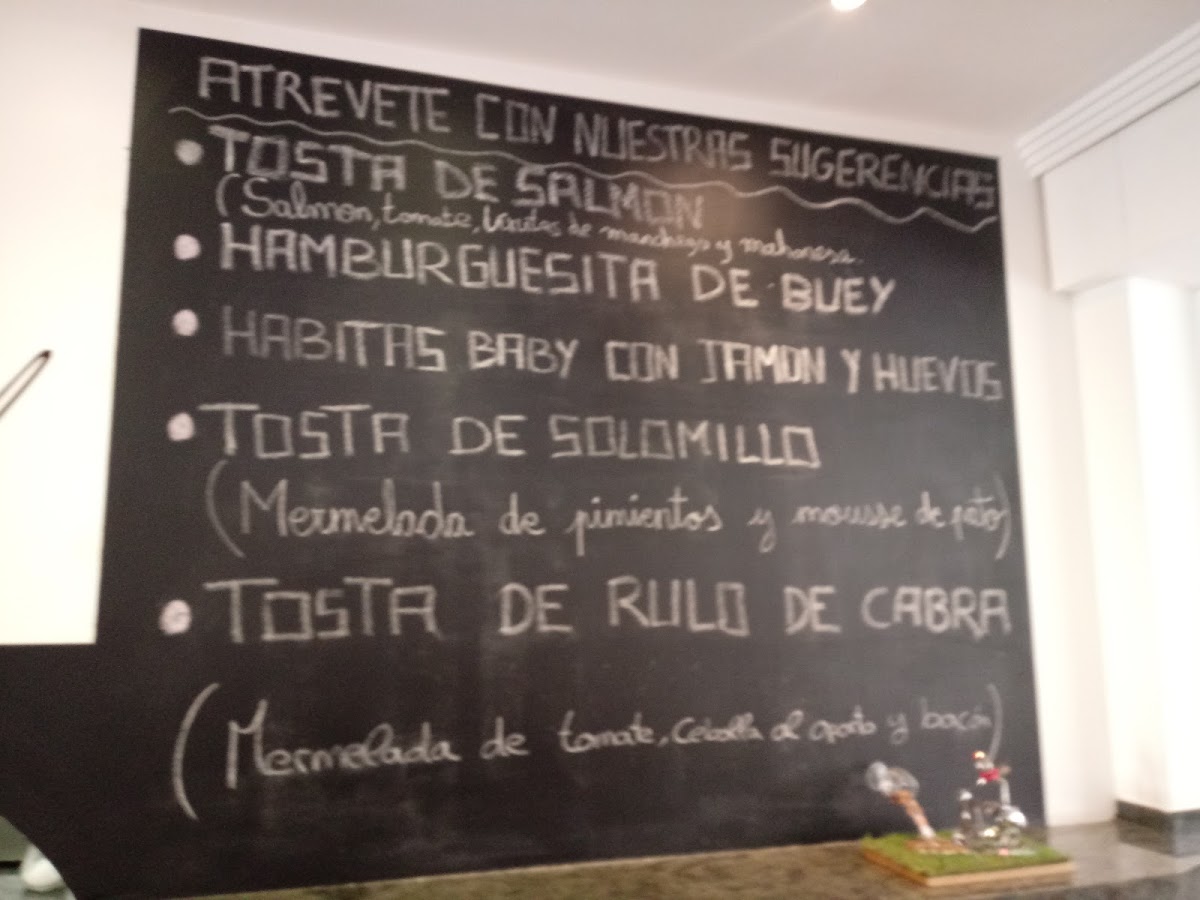 ATREVETE CON NUESTRAS SUGERENCIAS
• TOSTA DE SALMON
(Salmon, tomate, virutas de manchego y mahonesa.
• HAMBURGUESITA DE BUEY
• HABITAS BABY CON JAMON Y HUEVOS
• TOSTA DE SOLOMILLO
(Mermelada de pimientos y mousse de pato)
• TOSTA DE RULO DE CABRA
(Mermelada de tomate, Cebolla al oporto y bacón)